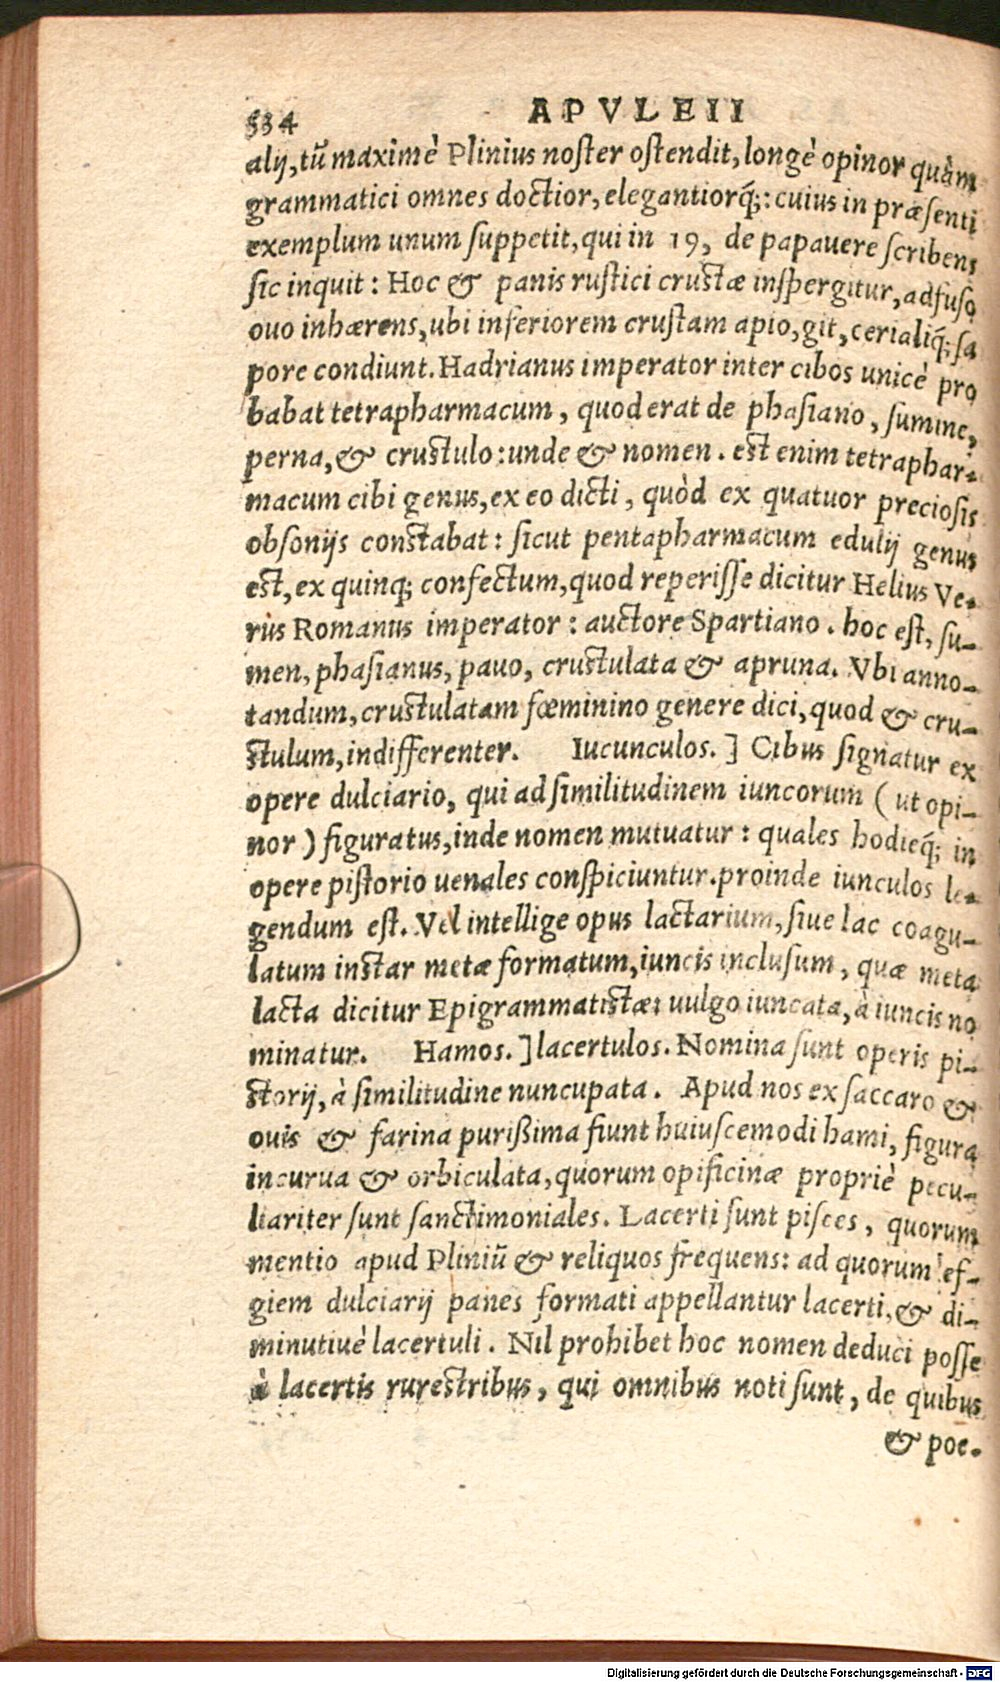 534 APVLEII
alij, tū maximè Plinius noster ostendit, longè opinor quàm
grammatici omnes doctior, elegantiorq́;: cuius in præsenti
exemplum unum suppetit, qui in 19, de papauere scribens
sic inquit: Hoc & panis rustici crustæ inspergitur, adfuso
ouo inhærens, ubi inferiorem crustam apio, git, cerialiq́; sa
pore condiunt. Hadrianus imperator inter cibos unicè pro
babat tetrapharmacum, quod erat de phasiano, sumine,
perna, & crustulo: unde & nomen. est enim tetraphar-
macum cibi genus, ex eo dicti, quòd ex quatuor preciosis
obsonijs constabat: sicut pentapharmacum edulij genus
est, ex quinq; confectum, quod reperisse dicitur Helius Ve-
rus Romanus imperator: auctore Spartiano. hoc est, su-
men, phasianus, pauo, crustulata & apruna. Vbi anno-
tandum, crustulatam fœminino genere dici, quod & cru-
stulum, indifferenter. Iucunculos.] Cibus signatur ex
opere dulciario, qui ad similitudinem iuncorum (ut opi-
nor) figuratus, inde nomen mutuatur: quales hodieq́; in
opere pistorio uenales conspiciuntur. proinde iunculos le-
gendum est. Vel intellige opus lactarium, siue lac coagu-
latum instar metæ formatum, iuncis inclusum, quæ meta
lacta dicitur Epigrammatistæ: uulgo iuncata, à iuncis no
minatur. Hamos.] lacertulos. Nomina sunt operis pi-
storij, à similitudine nuncupata. Apud nos ex saccaro &
ouis & farina purißima fiunt huiuscemodi hami, figura
incurua & orbiculata, quorum opificinæ propriè pecu-
liariter sunt sanctimoniales. Lacerti sunt pisces, quorum
mentio apud Pliniū & reliquos frequens: ad quorum ef-
giem dulciarij panes formati appellantur lacerti, & di-
minutiuè lacertuli. Nil prohibet hoc nomen deduci posse
à lacertis rurestribus, qui omnibus noti sunt, de quibus
& poe-
Digitalisierung gefördert durch die Deutsche Forschungsgemeinschaft - DFG